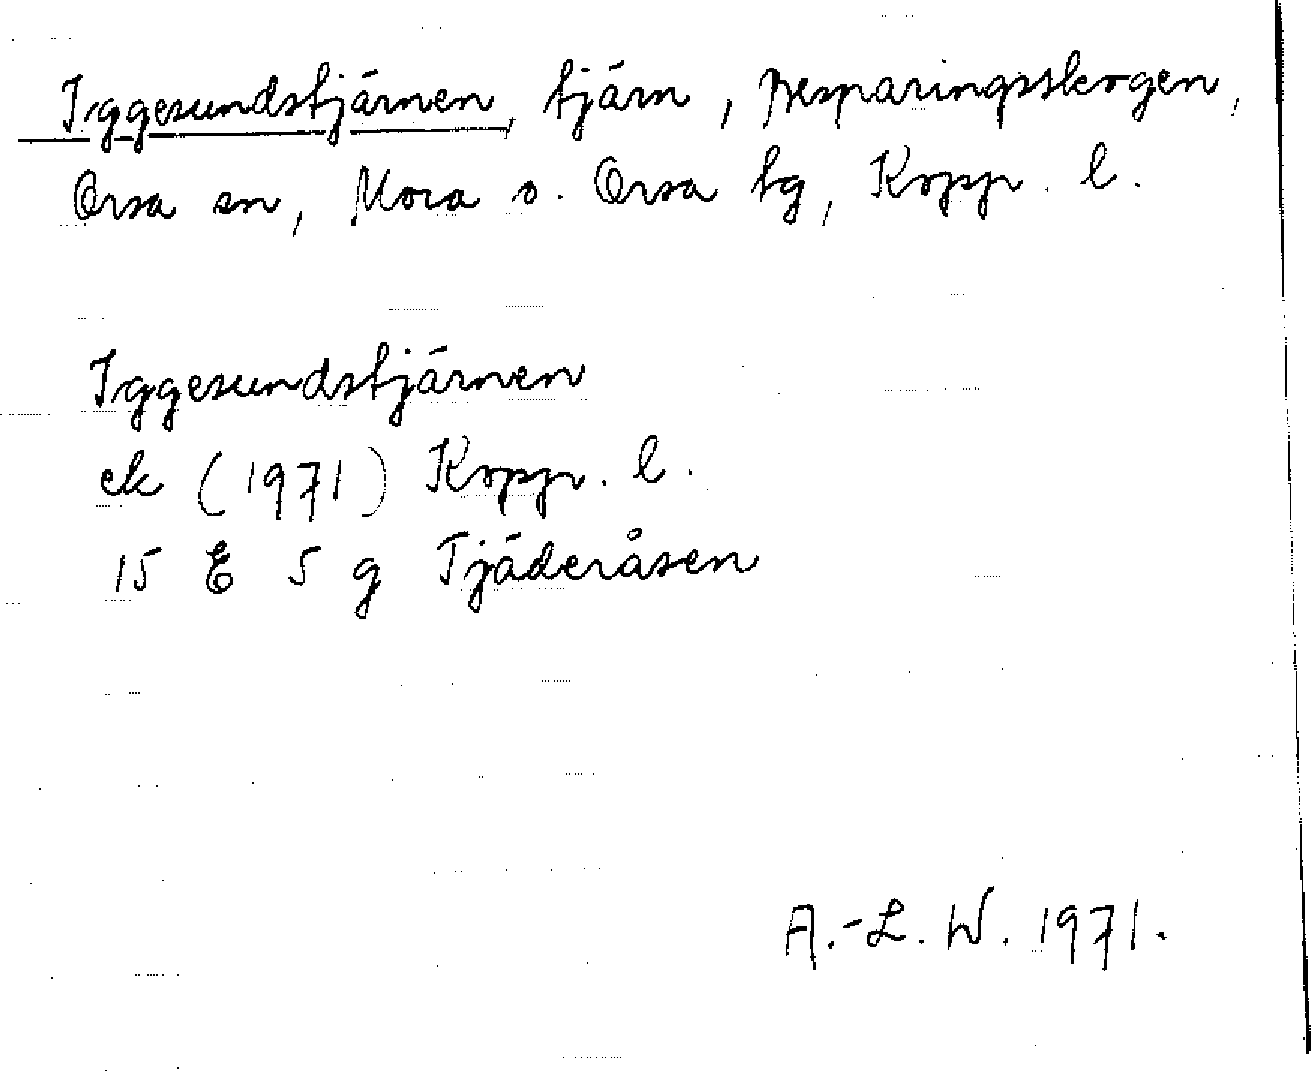 Iggesundstjärnen, tjärn, Besparingsskogen,
Orsa sn, Mora o. Orsa tg, Kopp. l.
Iggesundstjärnen
ek (1971) Kopp. l.
15 E 5 g Tjäderåsen
A.-L. W. 1971.